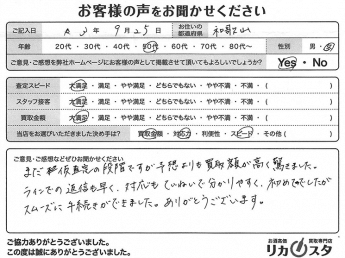 お客様の声をお聞かせください
ご記入日 R 3 年 9 月 25 日 お住いの都道府県 和歌山
年齢 20代・30代・40代・50代・60代・70代・80代〜 性別 男・女
ご意見・ご感想を弊社ホームページにお客様の声として掲載させて頂いてもよろしいでしょうか? Yes・No
査定スピード 大満足・満足・やや満足・どちらでもない・やや不満・不満・( )
スタッフ接客 大満足・満足・やや満足・どちらでもない・やや不満・不満・( )
買取金額 大満足・満足・やや満足・どちらでもない・やや不満・不満・( )
当店をお選びいただきました決め手は? 買取金額・対応力・利便性・スピード・その他( )
ご意見・ご感想などぜひお聞かせください
まだ仮査定の段階ですが予想よりも買取額が高く驚きました。
ラインでの返信も早く、対応もていねいで分かりやすく、初めてでしたが
スムーズに手続きができました。ありがとうございます。
ご協力ありがとうございました。
この度は誠にありがとうございました。
お酒高価買取専門店
リカスタ